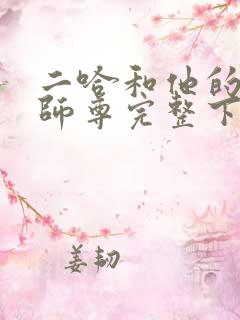 二哈和他的
師尊完整下
姜韧